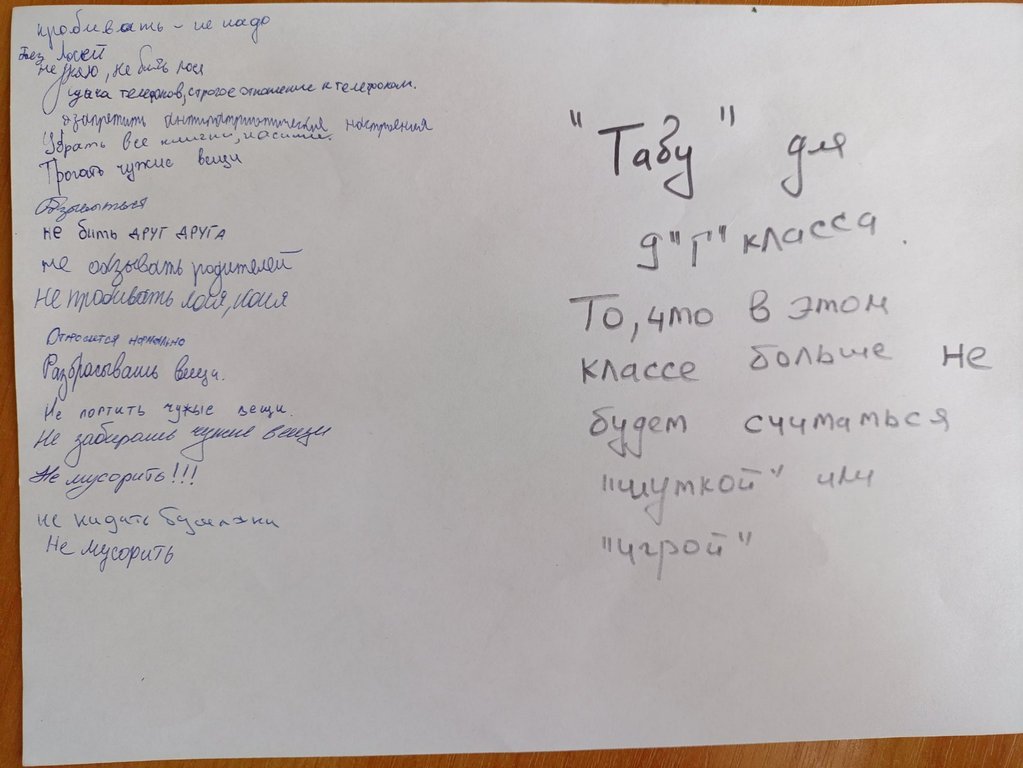 пробивать - не надо
Без лосей
не бить лося
сдача телефонов, строгое отношение к телефонам.
запретить антипатриотическия настроения
Убрать все клички, насилие.
Трогать чужие вещи
Обзываться
не бить друг друга
не обзывать родителей
Не пробивать лося, коня
Относится нормально
Разбрасывать вещи.
Не портить чужые вещи.
Не забирать чужие вещи
Не мусорить!!!
не кидать бумажки
Не мусорить
"Табу" для
9 "Г" класса.
То, что в этом
классе больше не
будет считаться
"шуткой" или
"игрой"